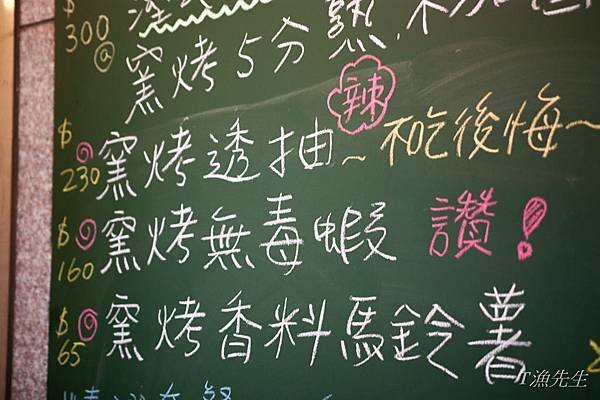 $300@
窯烤5分熟,
辣
$230 窯烤透抽~不吃後悔~
$160 窯烤無毒蝦 讚!
$65 窯烤香料馬鈴薯
T漁先生